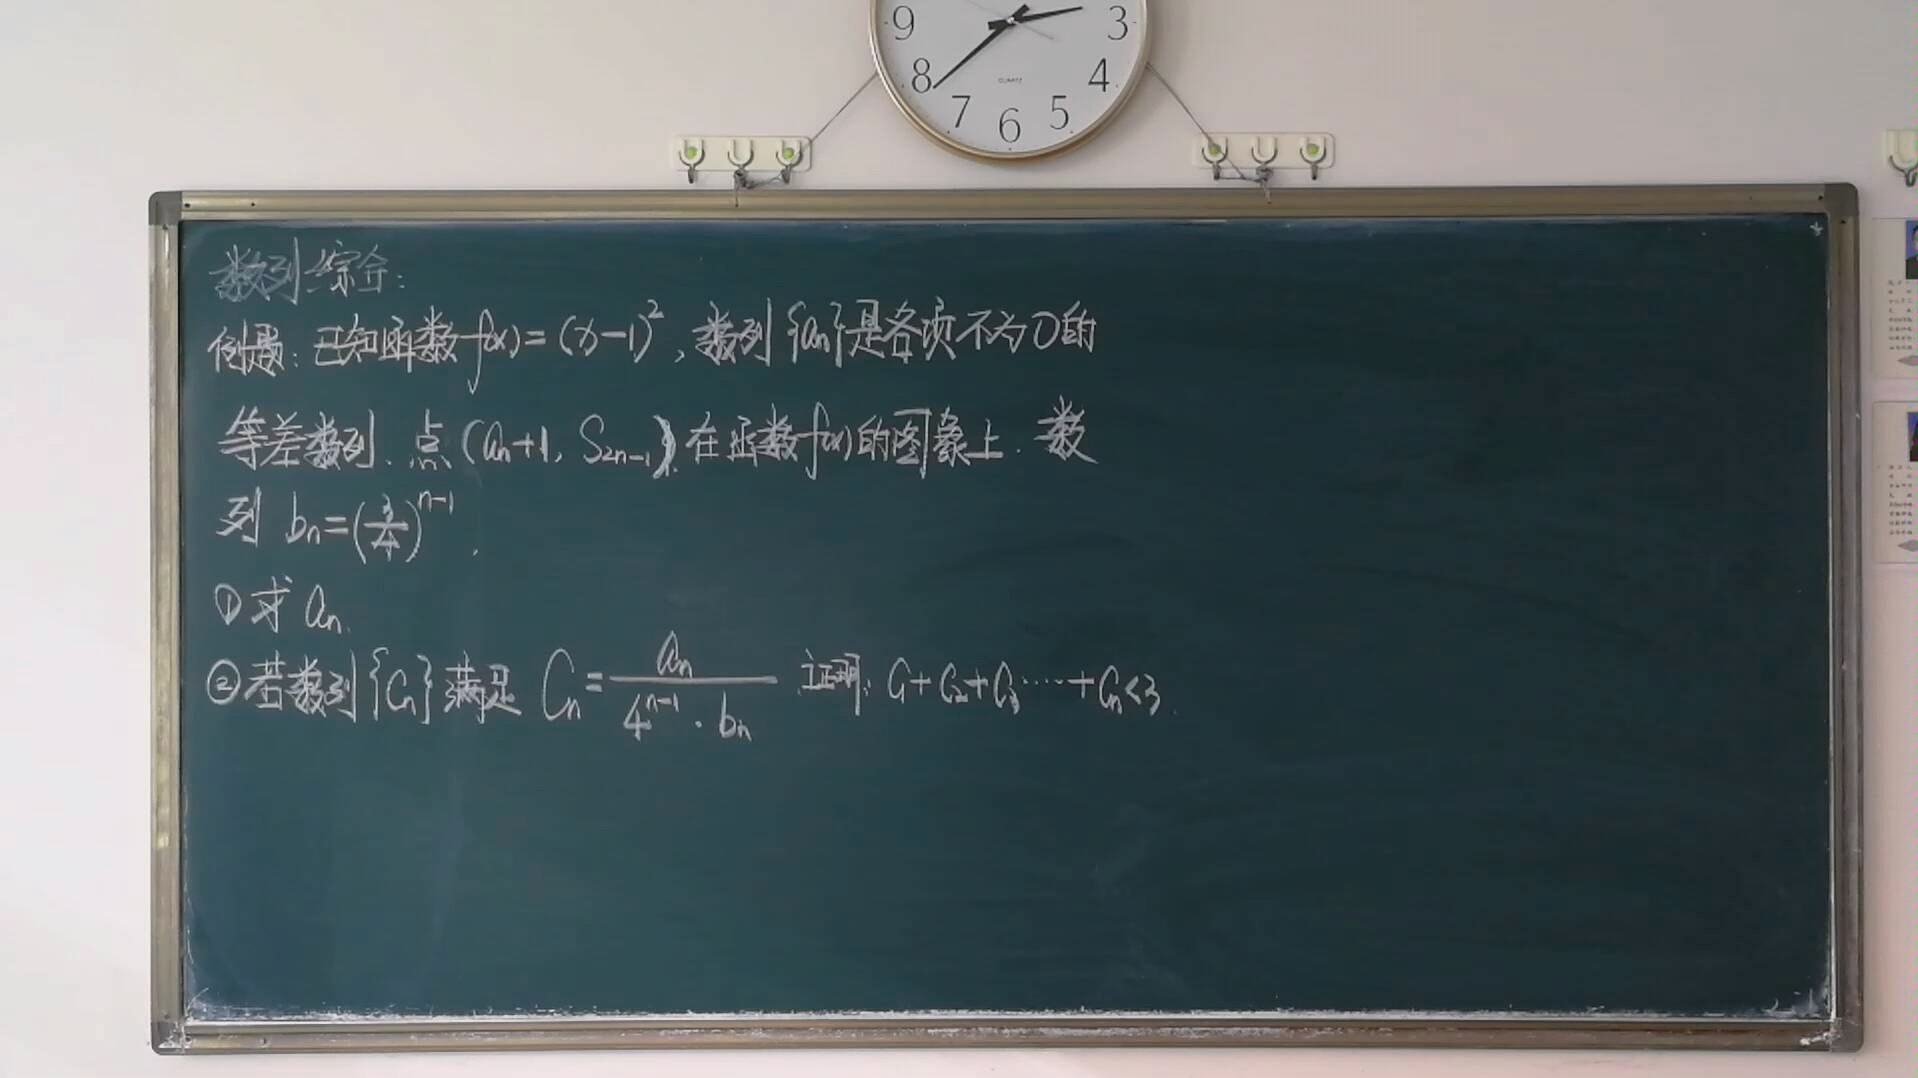 9 3
8 4
7 6 5
QUARTZ
数列综合:
例题: 已知函数f(x)=(x-1)², 数列{an}是各项不为0的
等差数列. 点(an+1, S2n-1)在函数f(x)的图象上. 数
列 bn=(3/4)^(n-1).
①求an.
②若数列{Cn}满足 Cn=an/(4^(n-1)·bn) 证明: C1+C2+C3……+Cn<3.